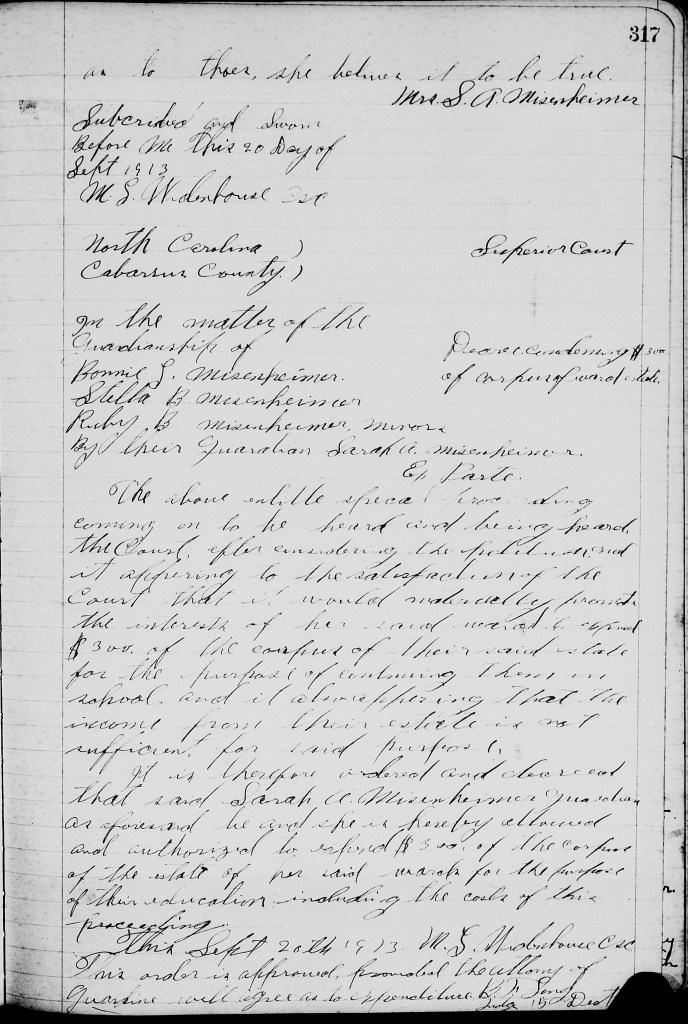 317
as to thoes, she believes it to be true.
Mrs. S. A. Misenheimer
Subscribed and Sworn
Before Me This 20 Day of
Sept 1913
M. G. Widenhouse CSC
North Carolina )
Superior Court
Cabarrus County. )
In the matter of the
Guardianship of
Decree condeming $300
Bonnie L. Misenheimer.
of corpus of ward estate.
Stella B. Misenheimer
Ruby B Misenheimer, minors
By their Guardian Sarah A. Misenheimer.
Ex Parte.
The above entitle special proceeding
coming on to be heard and being heard,
the Court, after considering the petition, and
it appering to the satisfaction of the
Court that it would materially promote
the interests of her said wards to expend
$300. of the corpus of their said estate
for the purpose of continuing them in
school, and it also appering that the
income from their estate is not
sufficient for said purpose.
It is therefore ordered and decreed
that said Sarah A. Misenheimer Guardian
as aforesaid be and she is hereby allowed
and authorized to expend $300. of the corpus
of the estate of her said wards for the purpose
of their education including the costs of this
proceeding.
This Sept 20th 1913. M. G. Widenhouse C S C
This order is approved, provided the attorny of
Guardine will agree as to expenditure B. F. Long
Judge 15 Dist